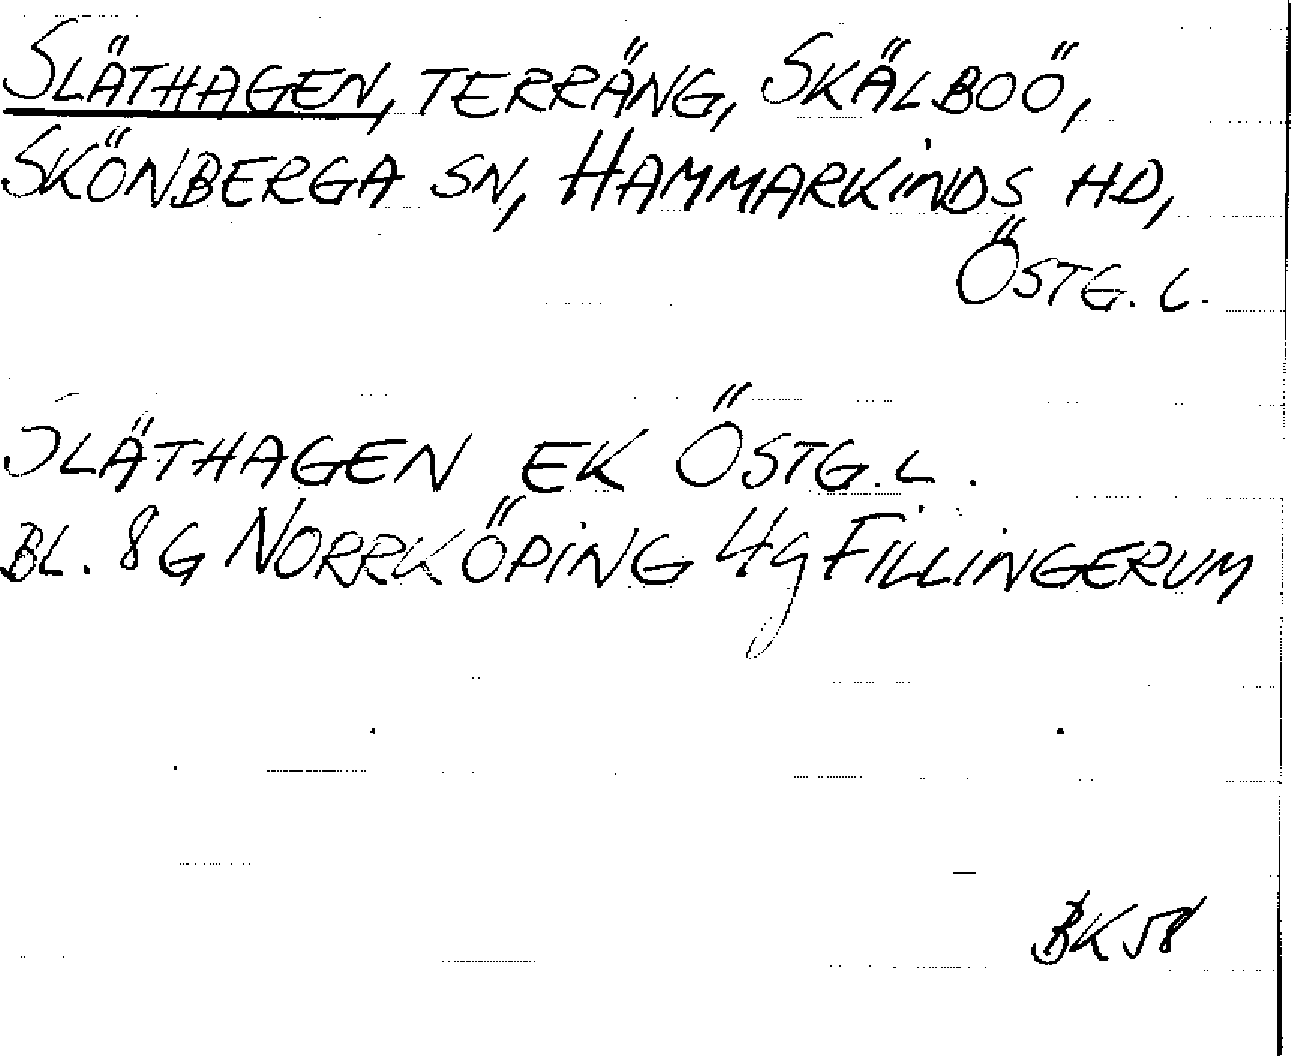 SLÄTHAGEN, TERRÄNG, SKÄLBOÖ,
SKÖNBERGA SN, HAMMARKINDS HD,
ÖSTG. L.
SLÄTHAGEN EK ÖSTG. L.
BL. 8G NORRKÖPING 4g FILLINGERUM
BK 58